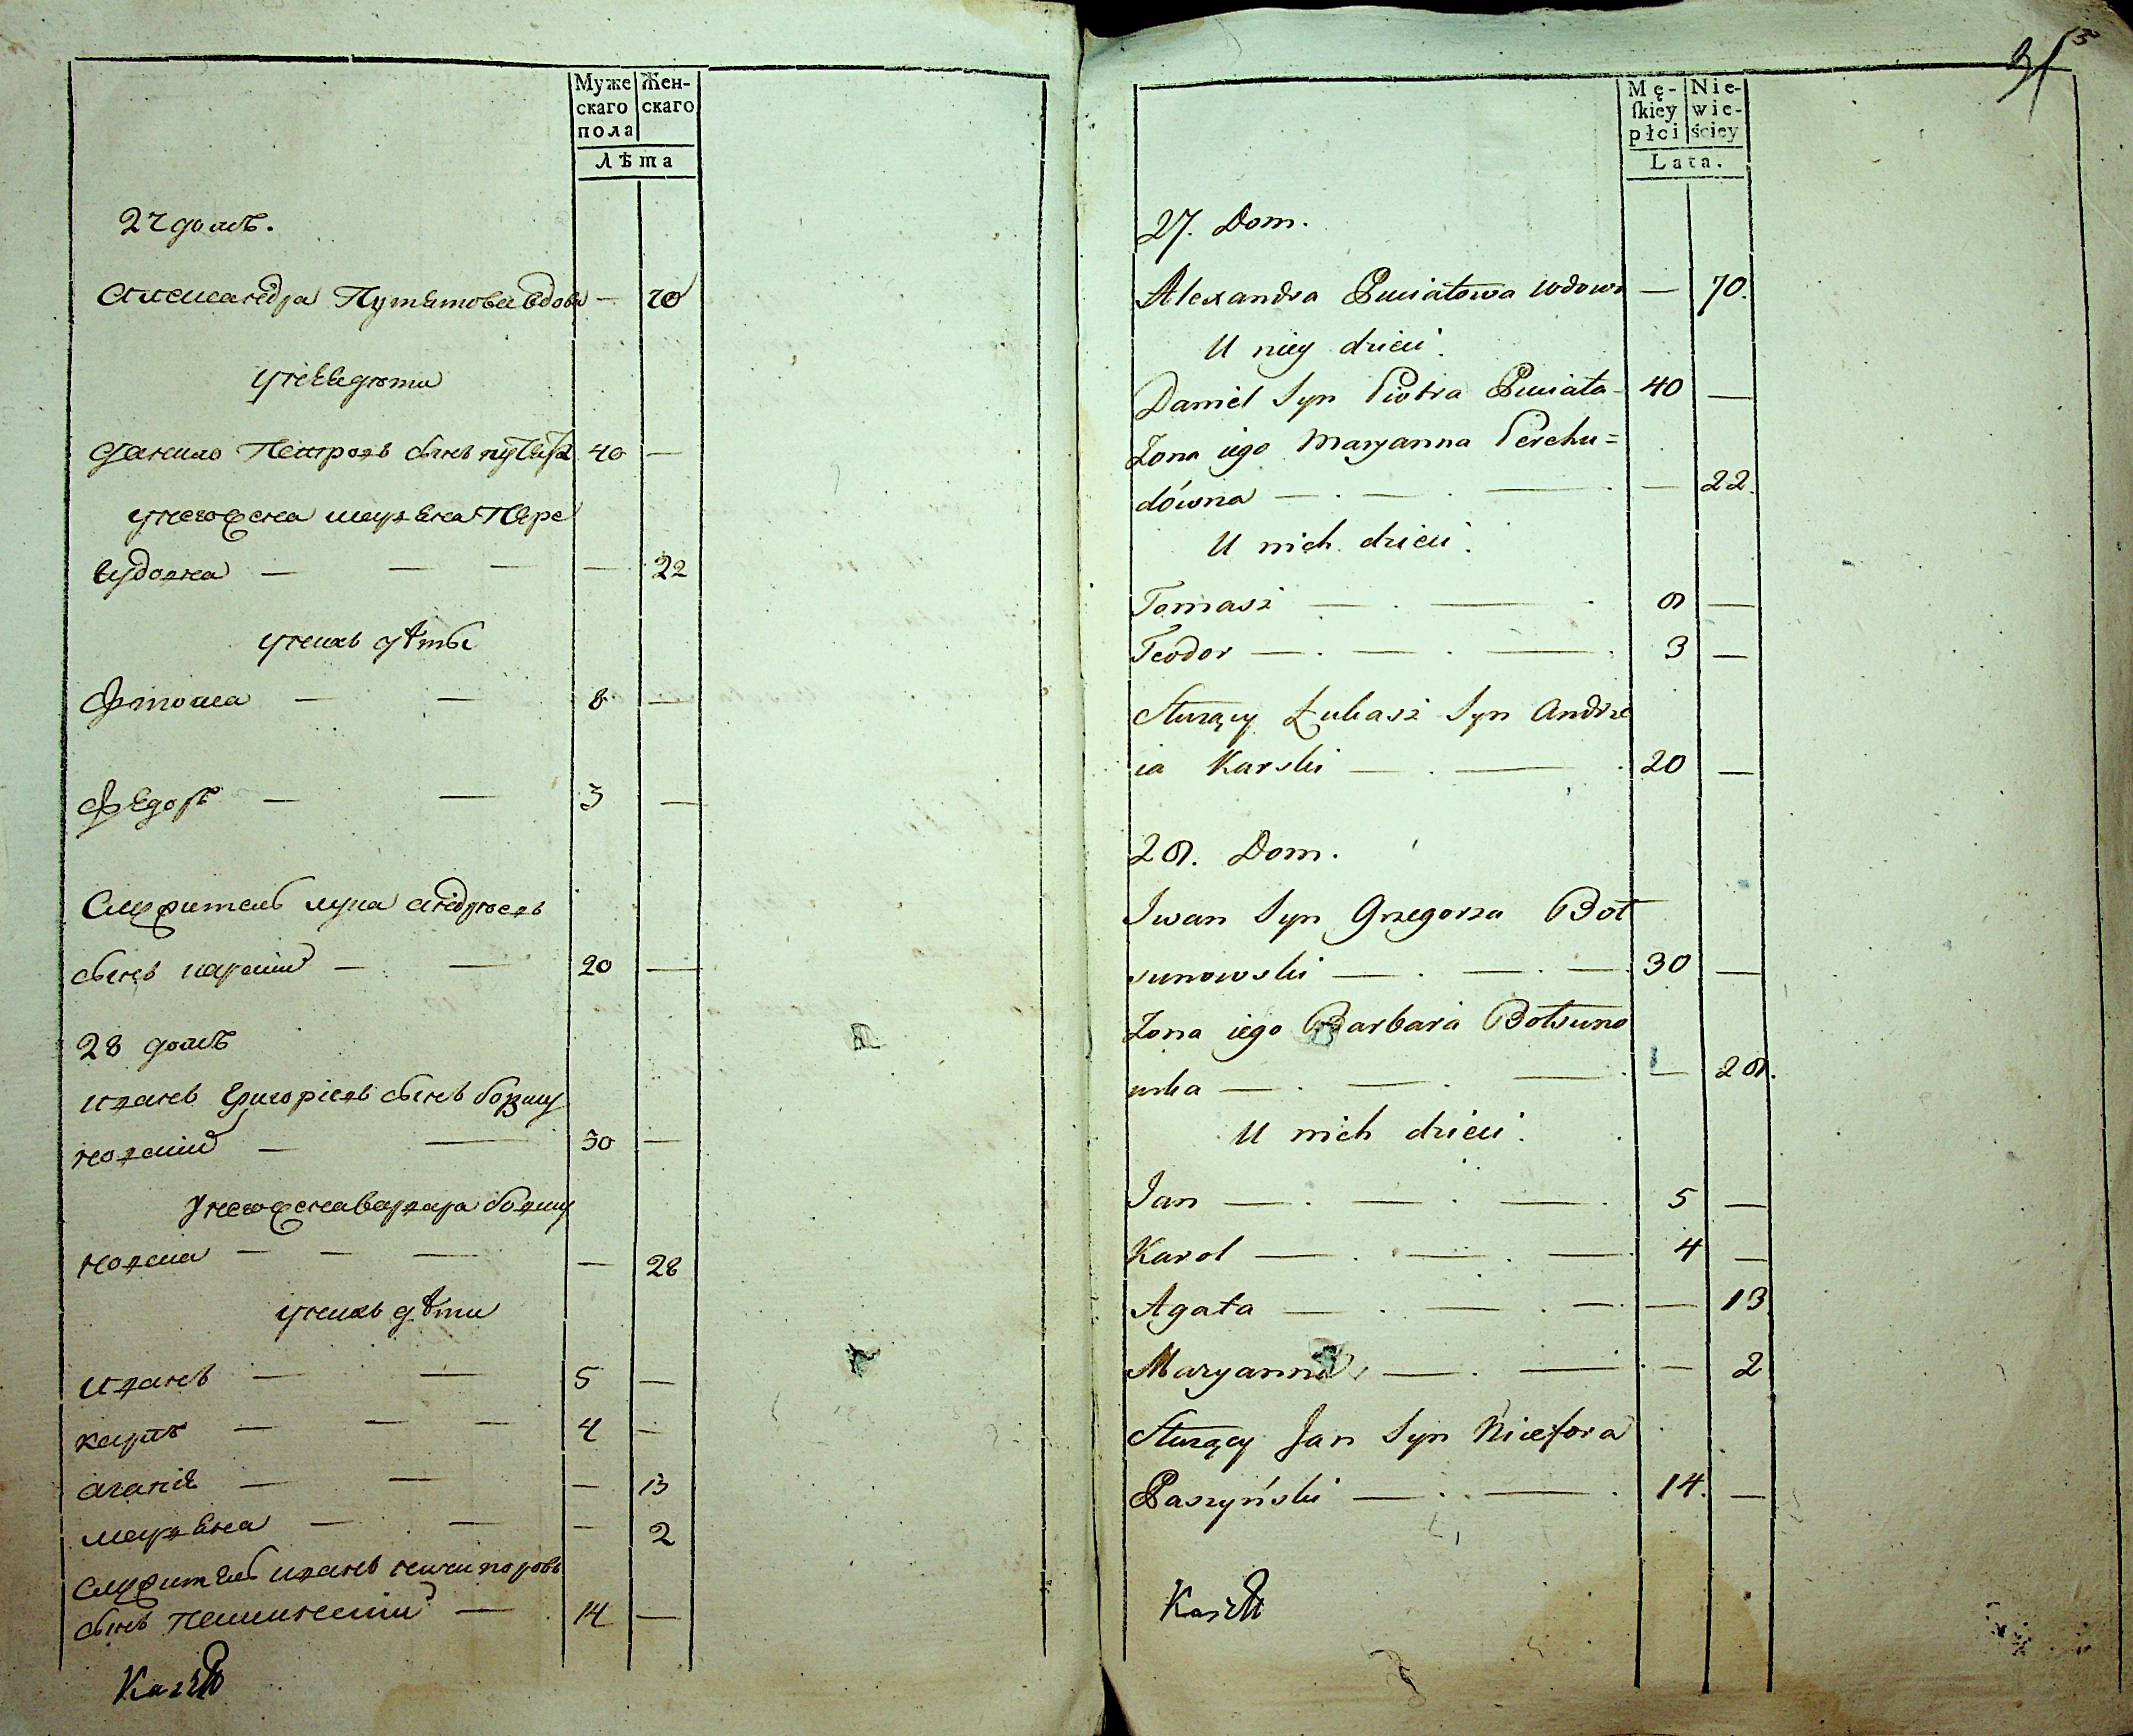 Муже
скаго
пола
Жен-
скаго
Лѣта
27 домъ.
Александра Путятова вдова — 70
у неѣ дѣти
Данило Петровъ сынъ Путята 40 —
у него жена Марьѣна Пере
худовна — — — — 22
у нихъ дѣти
Фтома — — 8 —
Фѣдоръ — — 3 —
Служитель Лука Андреевъ
сынъ Карскій — — 20 —
28 домъ
Иванъ Григоріевъ сынъ Болцу
новскій — — 30 —
У него жена Варвара Болцу
новска — — — — 28
у нихъ дѣти
Иванъ — — 5 —
Карпъ — — — 4 —
Аганѣ — — — 13
Марьѣна — — — 2
Служитѣль Иванъ Ничипоровъ
сынъ Пашинскій — 14 —
31
Mę-
skiey
płci
Nie-
wie-
ściey
Lata.
27. Dom.
Alexandra Puciatowa wdowa — 70.
U niey dzieci.
Daniel Syn Piotra Puciata 40 —
Zona iego Maryanna Perchu=
dówna — . — . — . — 22.
U nich dzieci.
Tomasz — . — . 8 —
Teodor — . — . — . 3 —
Służący Łukasz Syn Andrze
ia Karski — . — . 20 —
28. Dom.
Iwan Syn Grzegorza Boł
sunowski — . — . — . 30 —
Zona iego Barbara Bołsuno
wska — . — . — . — 28.
U nich dzieci.
Jan — . — . — . 5 —
Karol — . — . — . 4 —
Agata — . — . — . — 13
Maryanna — . — . — 2
Służący Jan Syn Nicefora
Paszyński — . . — . 14. —